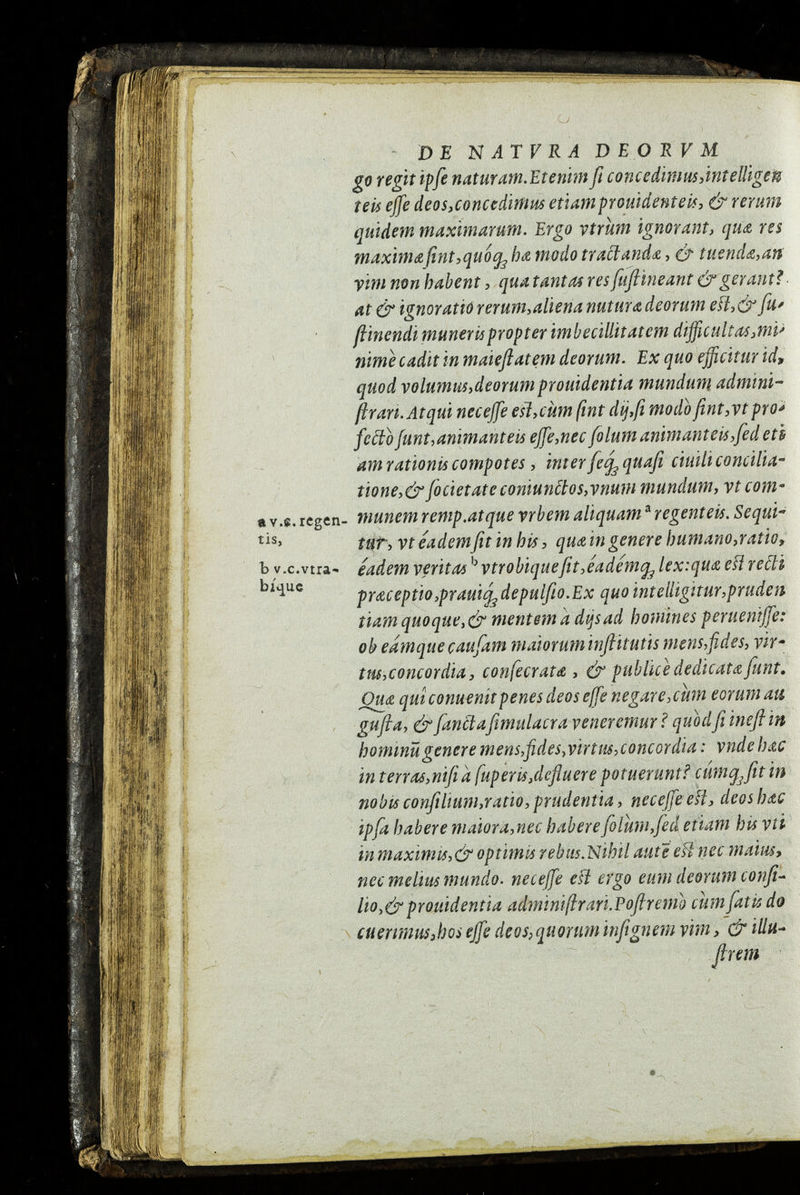 DE NATVRA DEORVM
go regit ipse naturam. Etenim si concedimus, intelligen
teis esse deos, concedimus etiam prouidenteis, & rerum
quidem maximarum. Ergo vtrùm ignorant, quæ res
maximæ sint, quóq; hæ modo tractandæ, & tuendæ, an
vim non habent, qua tantas res sustineant & gerant?
at & ignoratio rerum, aliena naturæ deorum est, & su-
stinendi muneris propter imbecillitatem difficultas, mi-
nimè cadit in maiestatem deorum. Ex quo efficitur id,
quod volumus, deorum prouidentia mundum admini-
strari. Atqui necesse est, cùm sint dij, si modò sint, vt pro-
fectò sunt, animanteis esse, nec solum animanteis, sed eti
am rationis compotes, inter seq; quasi ciuili concilia-
tione, & societate coniunctos, vnum mundum, vt com-
munem remp. atque vrbem aliquam ª regenteis. Sequi-
tur, vt éadem sit in his, quæ in genere humano, ratio,
eadem veritas ᵇ vtrobique sit, éadémq; lex: quæ est recti
præceptio, prauiq; depulsio. Ex quo intelligitur, pruden
tiam quoque, & mentem à dijs ad homines peruenisse:
ob eámque causam maiorum institutis mens, fides, vir-
tus, concordia, consecratæ, & publicè dedicatæ sunt.
Quæ quî conuenit penes deos esse negare, cùm eorum au
gusta, & sancta simulacra veneremur? quòd si inest in
hominū genere mens, fides, virtus, concordia: vnde hæc
in terras, nisi à superis, defluere potuerunt? cúmq; sit in
nobis consilium, ratio, prudentia, necesse est, deos hæc
ipsa habere maiora, nec habere solùm, sed etiam his vti
in maximis, & optimis rebus. Nihil autē est nec maius,
nec melius mundo. necesse est ergo eum deorum consi-
lio, & prouidentia administrari. Postremò cùm satis do
cuerimus, hos esse deos, quorum insignem vim, & illu-
strem
a v.c. regen-
tis,
b v.c. vtra-
bíque